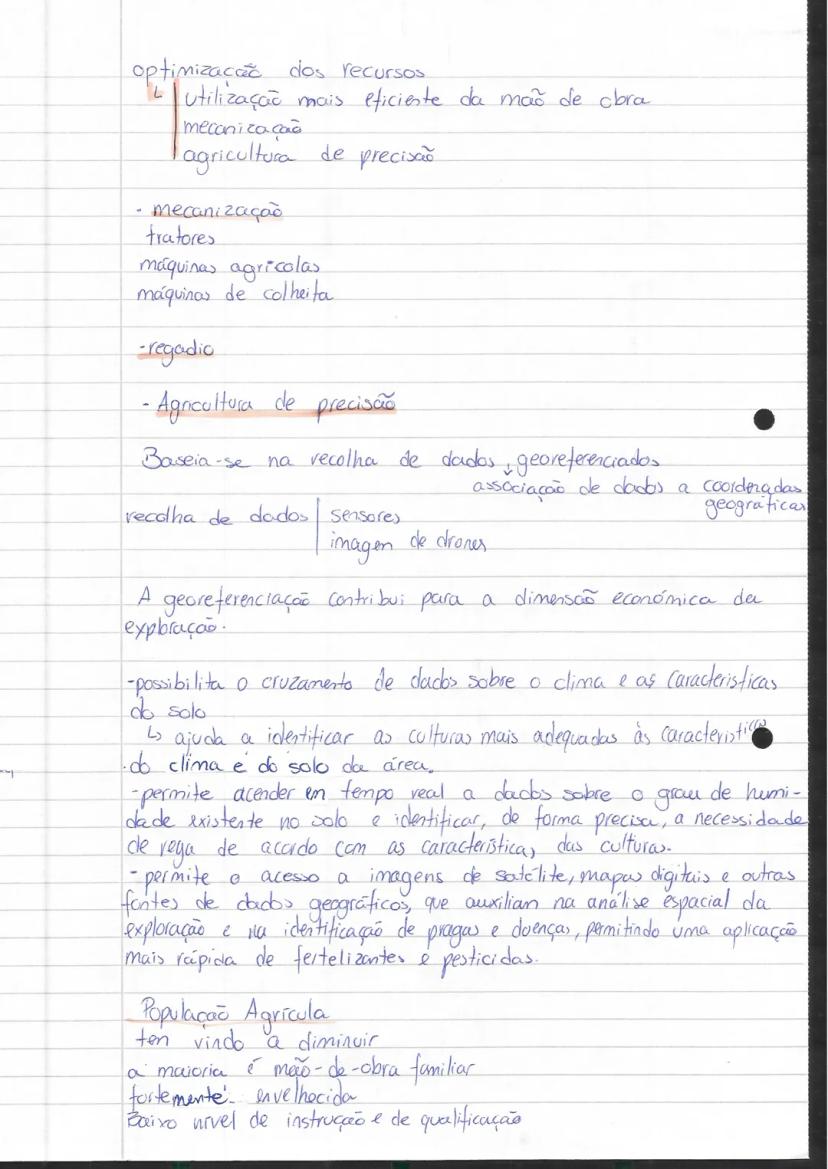 optimização dos recursos
↳ utilização mais eficiente da mão de obra
mecanização
agricultura de precisão
- mecanização
tratores
máquinas agrícolas
máquinas de colheita
- regadio
- Agricultura de precisão
Baseia-se na recolha de dados georeferenciados
↓ associação de dados a coordenadas
geográficas
recolha de dados | sensores
imagem de drones
A georeferenciação contribui para a dimensão económica da
exploração.
-possibilita o cruzamento de dados sobre o clima e as características
do solo
↳ ajuda a identificar as culturas mais adequadas às característi
do clima e do solo da área.
-permite acender em tempo real a dados sobre o grau de humi-
dade existente no solo e identificar, de forma precisa, a necessidade
de rega de acordo com as características das culturas.
- permite o acesso a imagens de satélite, mapas digitais e outras
fontes de dados geográficos, que auxiliam na análise espacial da
exploração e na identificação de pragas e doenças, permitindo uma aplicação
mais rápida de fertelizantes e pesticidas.
População Agrícula
tem vindo a diminuir
a maioria é mão-de-obra familiar
fortemente envelhecida
Baixo nível de instrução e de qualificação